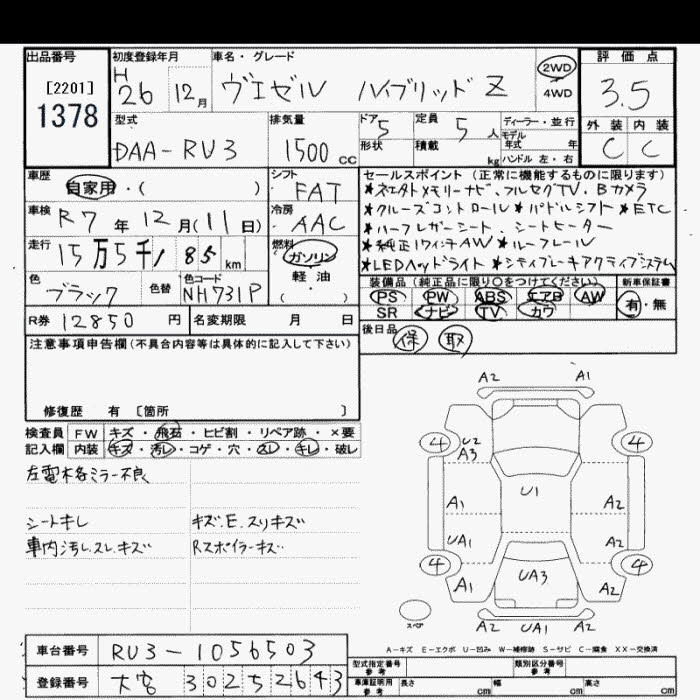 出品番号 初度登録年月 車名・グレード 評価点
[2201] H26 12月 ヴェゼル ハイブリッド Z 2WD 4WD 3.5
1378
型式 排気量 ドア 定員 ディーラー・並行 外装 内装
DAA-RU3 1500cc 5 5人 モデル年式 年 C C
形状 積載 kg ハンドル 左・右
車歴 自家用・( ) シフト FAT
セールスポイント(正常に機能するものに限ります)
★ギャザズメモリーナビ、フルセグTV、Bカメラ
車検 R7年12月(11日) 冷房 AAC
★クルーズコントロール ★パドルシフト ★ETC
★ハーフレザーシート、シートヒーター
走行 15万5千 85km 燃料 ガソリン 軽・油 ( )
★純正17インチAW ★ルーフレール
★LEDヘッドライト ★シティブレーキアクティブシステム
色 ブラック 色替 色コード NH731P
装備品(純正品に限り○をつけてください) 新車保証書
PS PW ABS エアB AW 有・無
SR ナビ TV カワ
R券 12850円 名変期限 月 日
後日品 保 取
注意事項申告欄(不具合内容等は具体的に記入して下さい)
修復歴 有 [箇所 ]
検査員記入欄 FW キズ・飛石・ヒビ割・リペア跡・×要
内装 キズ・汚レ・コゲ・穴・スレ・キレ・破レ
左電格ミラー不良
シートキレ キズ.E.スリキズ
車内汚レ.スレ.キズ Rスポイラーキズ
A2 A1
4 U2 A3 4
A1 U1 A2
UA1 A2
4 UA3 4
A1 A2
スペア A2 UA1 A2
A-キズ E-エクボ U-凹み W-補修跡 S-サビ C-腐食 XX-交換済
車台番号 RU3-1056503
型式指定番号 参考 類別区分番号 参考
登録番号 大宮 302 5 2643
車庫証明用 参考 長さ cm 幅 cm 高さ cm